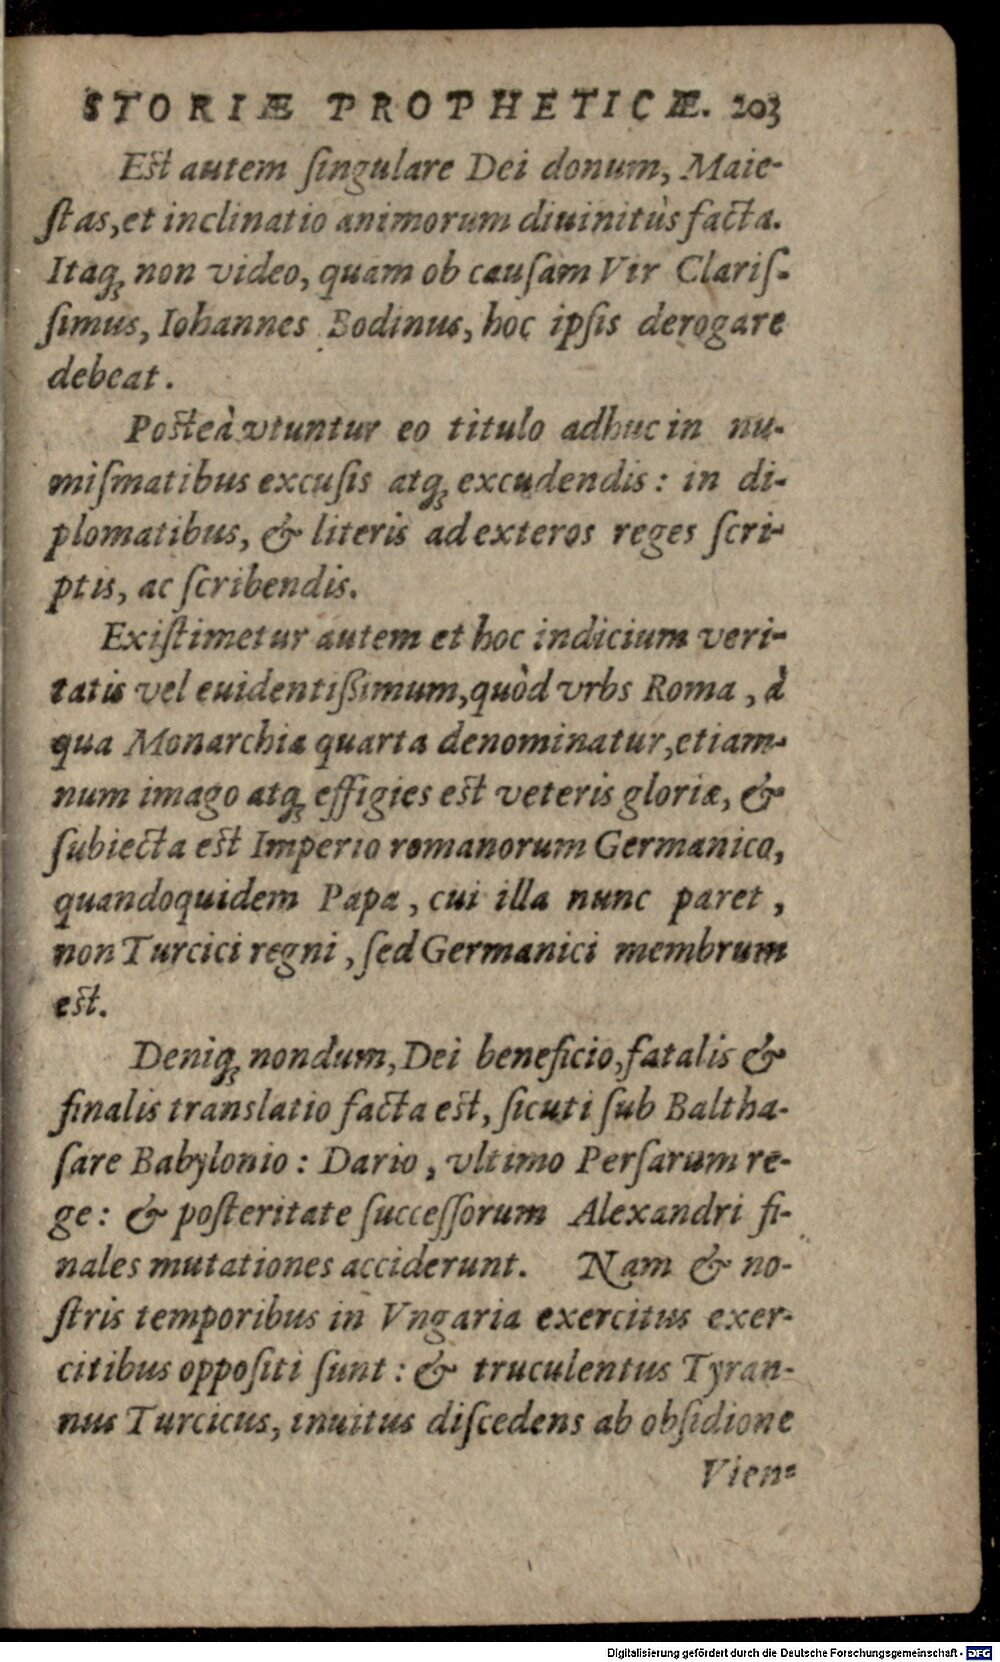 STORIÆ PROPHETICÆ. 203
Est autem ſingulare Dei donum, Maie-
ſtas, et inclinatio animorum diuinitùs facta.
Itaq; non video, quam ob cauſam Vir Clariſ-
ſimus, Iohannes Bodinus, hoc ipſis derogare
debeat.
Posteà vtuntur eo titulo adhuc in nu-
miſmatibus excuſis atq; excudendis: in di-
plomatibus, & literis ad exteros reges ſcri-
ptis, ac ſcribendis.
Exiſtimetur autem et hoc indicium veri-
tatis vel euidentißimum, quòd vrbs Roma, à
qua Monarchia quarta denominatur, etiam-
num imago atq; effigies est veteris gloriæ, &
ſubiecta est Imperio romanorum Germanico,
quandoquidem Papa, cui illa nunc paret,
non Turcici regni, ſed Germanici membrum
est.
Deniq; nondum, Dei beneficio, fatalis &
finalis translatio facta est, ſicuti ſub Baltha-
ſare Babylonio: Dario, vltimo Perſarum re-
ge: & poſteritate ſucceſſorum Alexandri fi-
nales mutationes acciderunt. Nam & no-
ſtris temporibus in Vngaria exercitus exer-
citibus oppoſiti ſunt: & truculentus Tyran-
nus Turcicus, inuitus diſcedens ab obſidione
Vien-
Digitalisierung gefördert durch die Deutsche Forschungsgemeinschaft - DFG